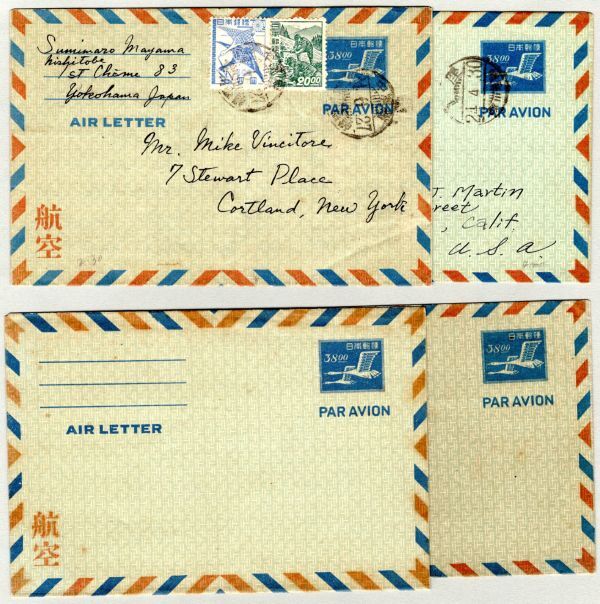 Sumimaro Mayama
Nishitobe
1st Chome 83
Yokohama Japan
AIR LETTER
日本郵便
日本郵便
20.00
日本郵便
38.00
PAR AVION
Mr. Mike Vincitore
7 Stewart Place
Cortland, New York
航空
日本郵便
38.00
PAR AVION
T. Martin
reet
, Calif.
U. S. A.
AIR LETTER
日本郵便
38.00
PAR AVION
航空
日本郵便
38.00
PAR AVION